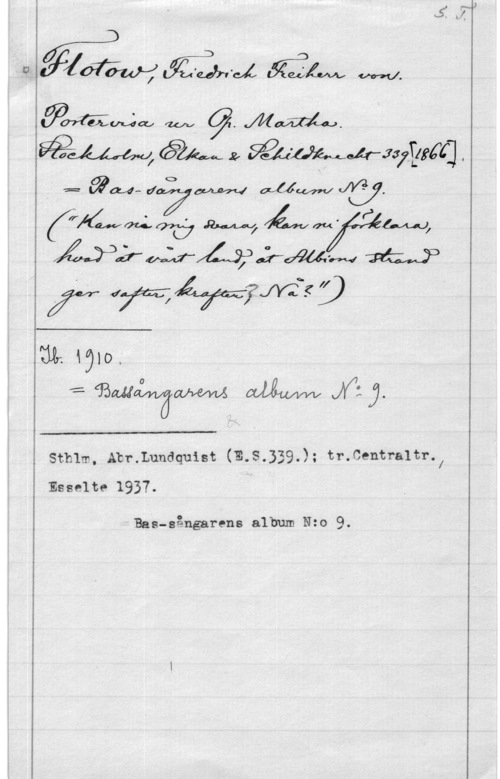 S. T.
Flotow, Friedrich Freiherr von.
Portervisa ur Op. Martha.
Stockholm, Elkan & Schildknecht 339 [1866].
= Bas-sångarens album No 9.
("Kan ni mig svara, kan ni förklara,
hvad åt vårt land, åt Albions strand
ger safter, krafter? Nå?")
Ib. 1910.
= Bassångarens album No 9.
Sthlm, Abr.Lundquist (E.S.339.); tr.Centraltr.,
Esselte 1937.
Bas-sångarens album N:o 9.